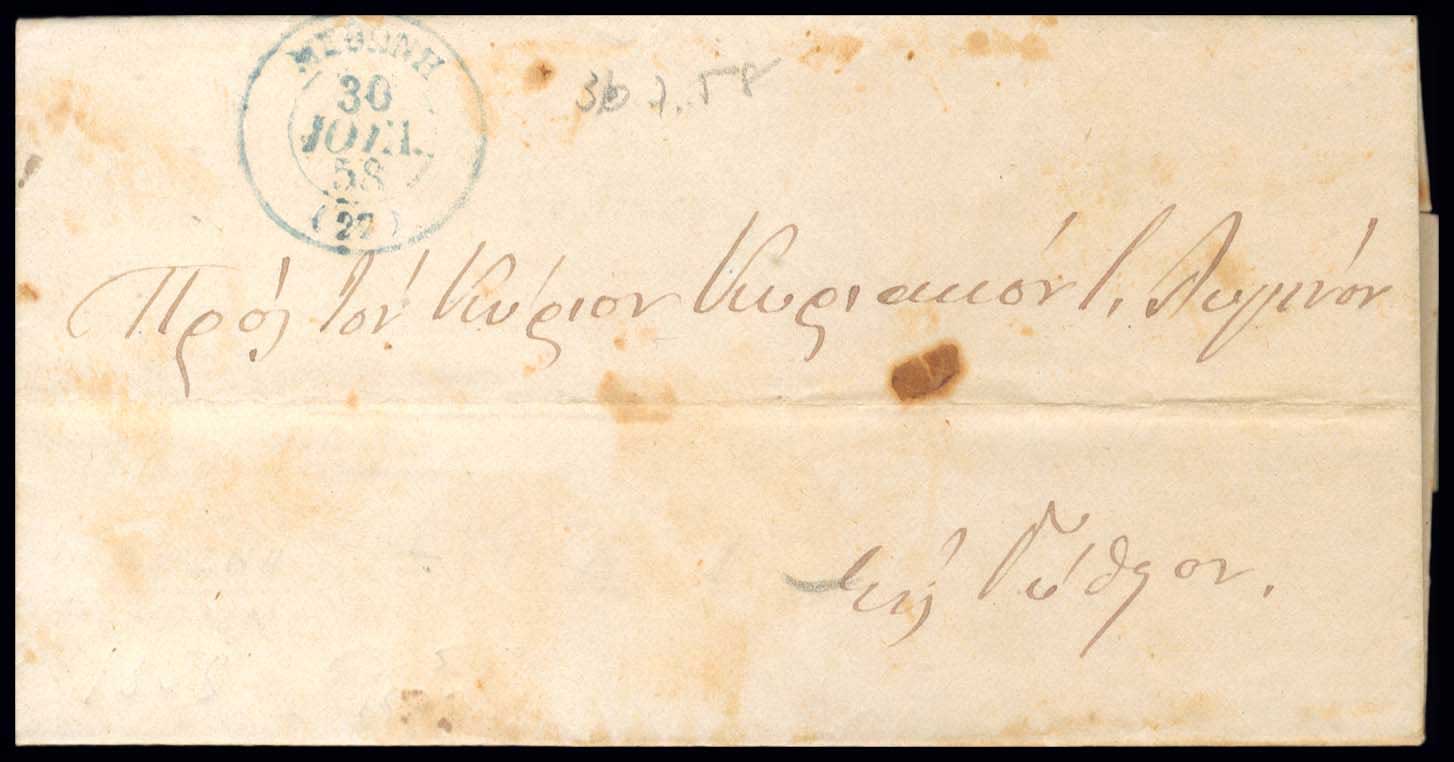 ΜΕΘΩΝΗ
30
ΙΟΥΛ.
58
(27)
30 7. 58
Πρός τον Κύριον Κυριακόν Γ.
εἰς Γύθειον.